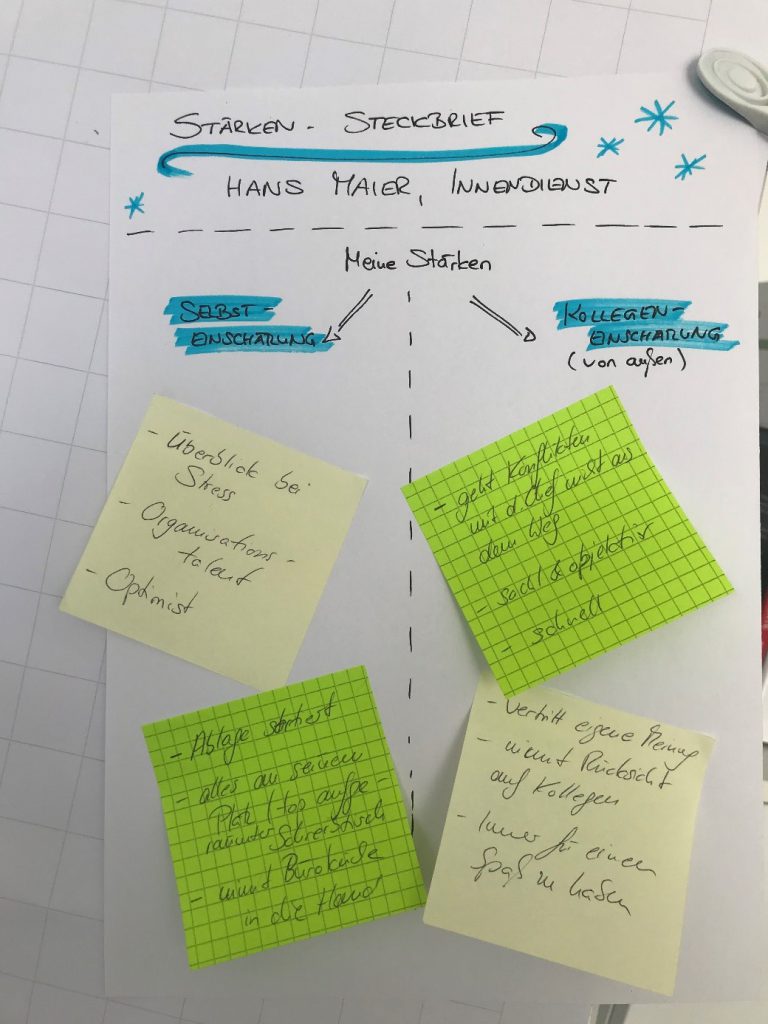 STÄRKEN - STECKBRIEF
HANS MAIER, INNENDIENST
Meine Stärken
SELBST-
EINSCHÄTZUNG
- Überblick bei
Stress
- Organisations-
talent
- Optimist
- Ablage sortiert
- alles an seinem
Platz / top aufge-
räumter Schreibtisch
- nimmt Büroküche
in die Hand
KOLLEGEN-
EINSCHÄTZUNG
(von außen)
- geht Konflikten
mit d. Chef nicht aus
dem Weg
- sachl & objektiv
- schnell
- vertritt eigene Meinung
- nimmt Rücksicht
auf Kollegen
- Immer für einen
Spaß zu haben